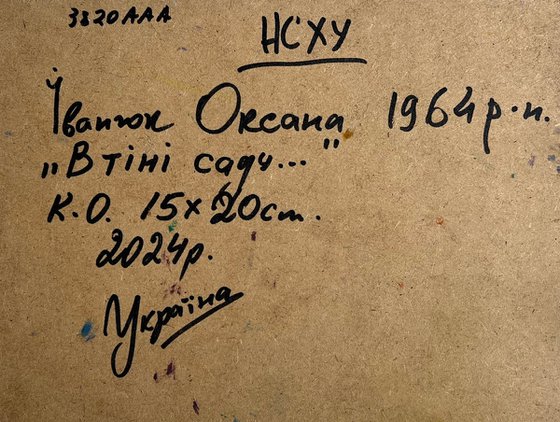 3320AAA
НСХУ
Іванюк Оксана 1964р.н.
„В тіні саду..."
К.О. 15х20ст.
2024р.
Україна